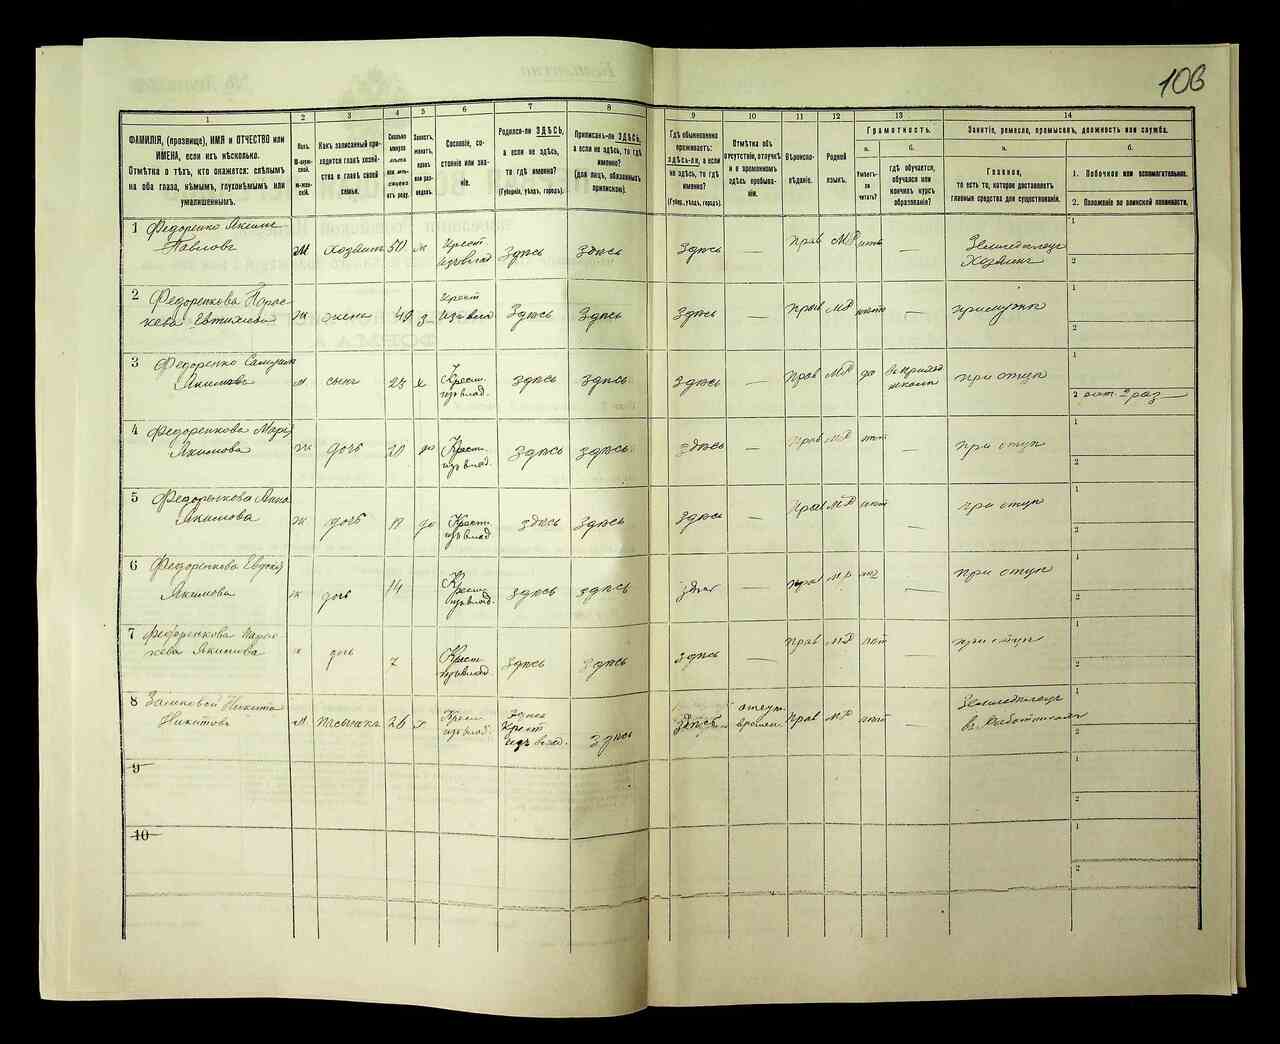 106
1
2
3
4
5
6
7
8
9
10
11
12
13
14
ФАМИЛІЯ, (прозвище), ИМЯ и ОТЧЕСТВО или
ИМЕНА, если ихъ нѣсколько.
Отмѣтка о тѣхъ, кто окажется: слѣпымъ
на оба глаза, нѣмымъ, глухонѣмымъ или
умалишеннымъ.
Полъ.
М-муж-
ской.
Ж-жен-
скій.
Какъ записанный при-
ходится главѣ хозяй-
ства и главѣ своей
семьи.
Сколько
минуло
лѣтъ
или мѣ-
сяцевъ
отъ роду.
Холостъ,
женатъ,
вдовъ
или раз-
веденъ.
Сословіе, со-
стояніе или зва-
ніе.
Родился-ли ЗДѢСЬ,
а если не здѣсь,
то гдѣ именно?
(Губернія, уѣздъ, городъ).
Приписанъ-ли ЗДѢСЬ,
а если не здѣсь, то гдѣ
именно?
(для лицъ, обязанныхъ
припискою).
Гдѣ обыкновенно
проживаетъ:
здѣсь-ли, а если
не здѣсь, то гдѣ
именно?
(Губер., уѣздъ, городъ).
Отмѣтка объ
отсутствіи, отлучкѣ
и о временномъ
здѣсь пребыва-
ніи.
Вѣроиспо-
вѣданіе.
Родной
языкъ.
Грамотность.
а.
б.
Умѣетъ-
ли
читать?
гдѣ обучается,
обучался или
кончилъ курсъ
образованія?
Занятіе, ремесло, промыселъ, должность или служба.
а.
б.
Главное,
то есть то, которое доставляетъ
главныя средства для существованія.
1. Побочное или вспомогательное.
2. Положеніе по воинской повинности.
1 Федоренко Якимъ
Павловъ м хозяинъ 50 ж Крест изъ влад здѣсь здѣсь здѣсь — Прав МР нѣтъ Земледѣлецъ
Хозяинъ
1
2
2 Федоренкова Парас-
кева Евтихіева ж жена 49 з Крест изъ влад здѣсь здѣсь здѣсь — Прав МР нѣтъ — при мужѣ
1
2
3 Федоренко
Якимовъ м сынъ х Крест. изъ влад. здѣсь здѣсь здѣсь — Прав МР да школѣ при отцѣ
1
2 2 раз
4 Федоренкова
Якимова ж дочь 20 Крест. изъ влад. здѣсь здѣсь здѣсь — Прав МР нѣт — при отцѣ
1
2
5 Федоренкова Анна
Якимова ж дочь Крест. изъ влад здѣсь здѣсь здѣсь — Прав МР нѣт — при отцѣ
1
2
6 Федоренкова
Якимова ж дочь 14 Крест. изъ влад. здѣсь здѣсь — Прав МР нѣт — при отцѣ
1
2
7 Федоренкова Парас-
кева Якимова ж дочь 7 Крест. изъ влад. здѣсь здѣсь здѣсь — Прав МР нѣт — при отцѣ
1
2
8 Никита
Никитовъ м 26 х Крест. изъ влад. Крест изъ влад. здѣсь здѣсь отсут. времен. Прав МР нѣт — Земледѣлецъ
1
2
9
1
2
10
1
2